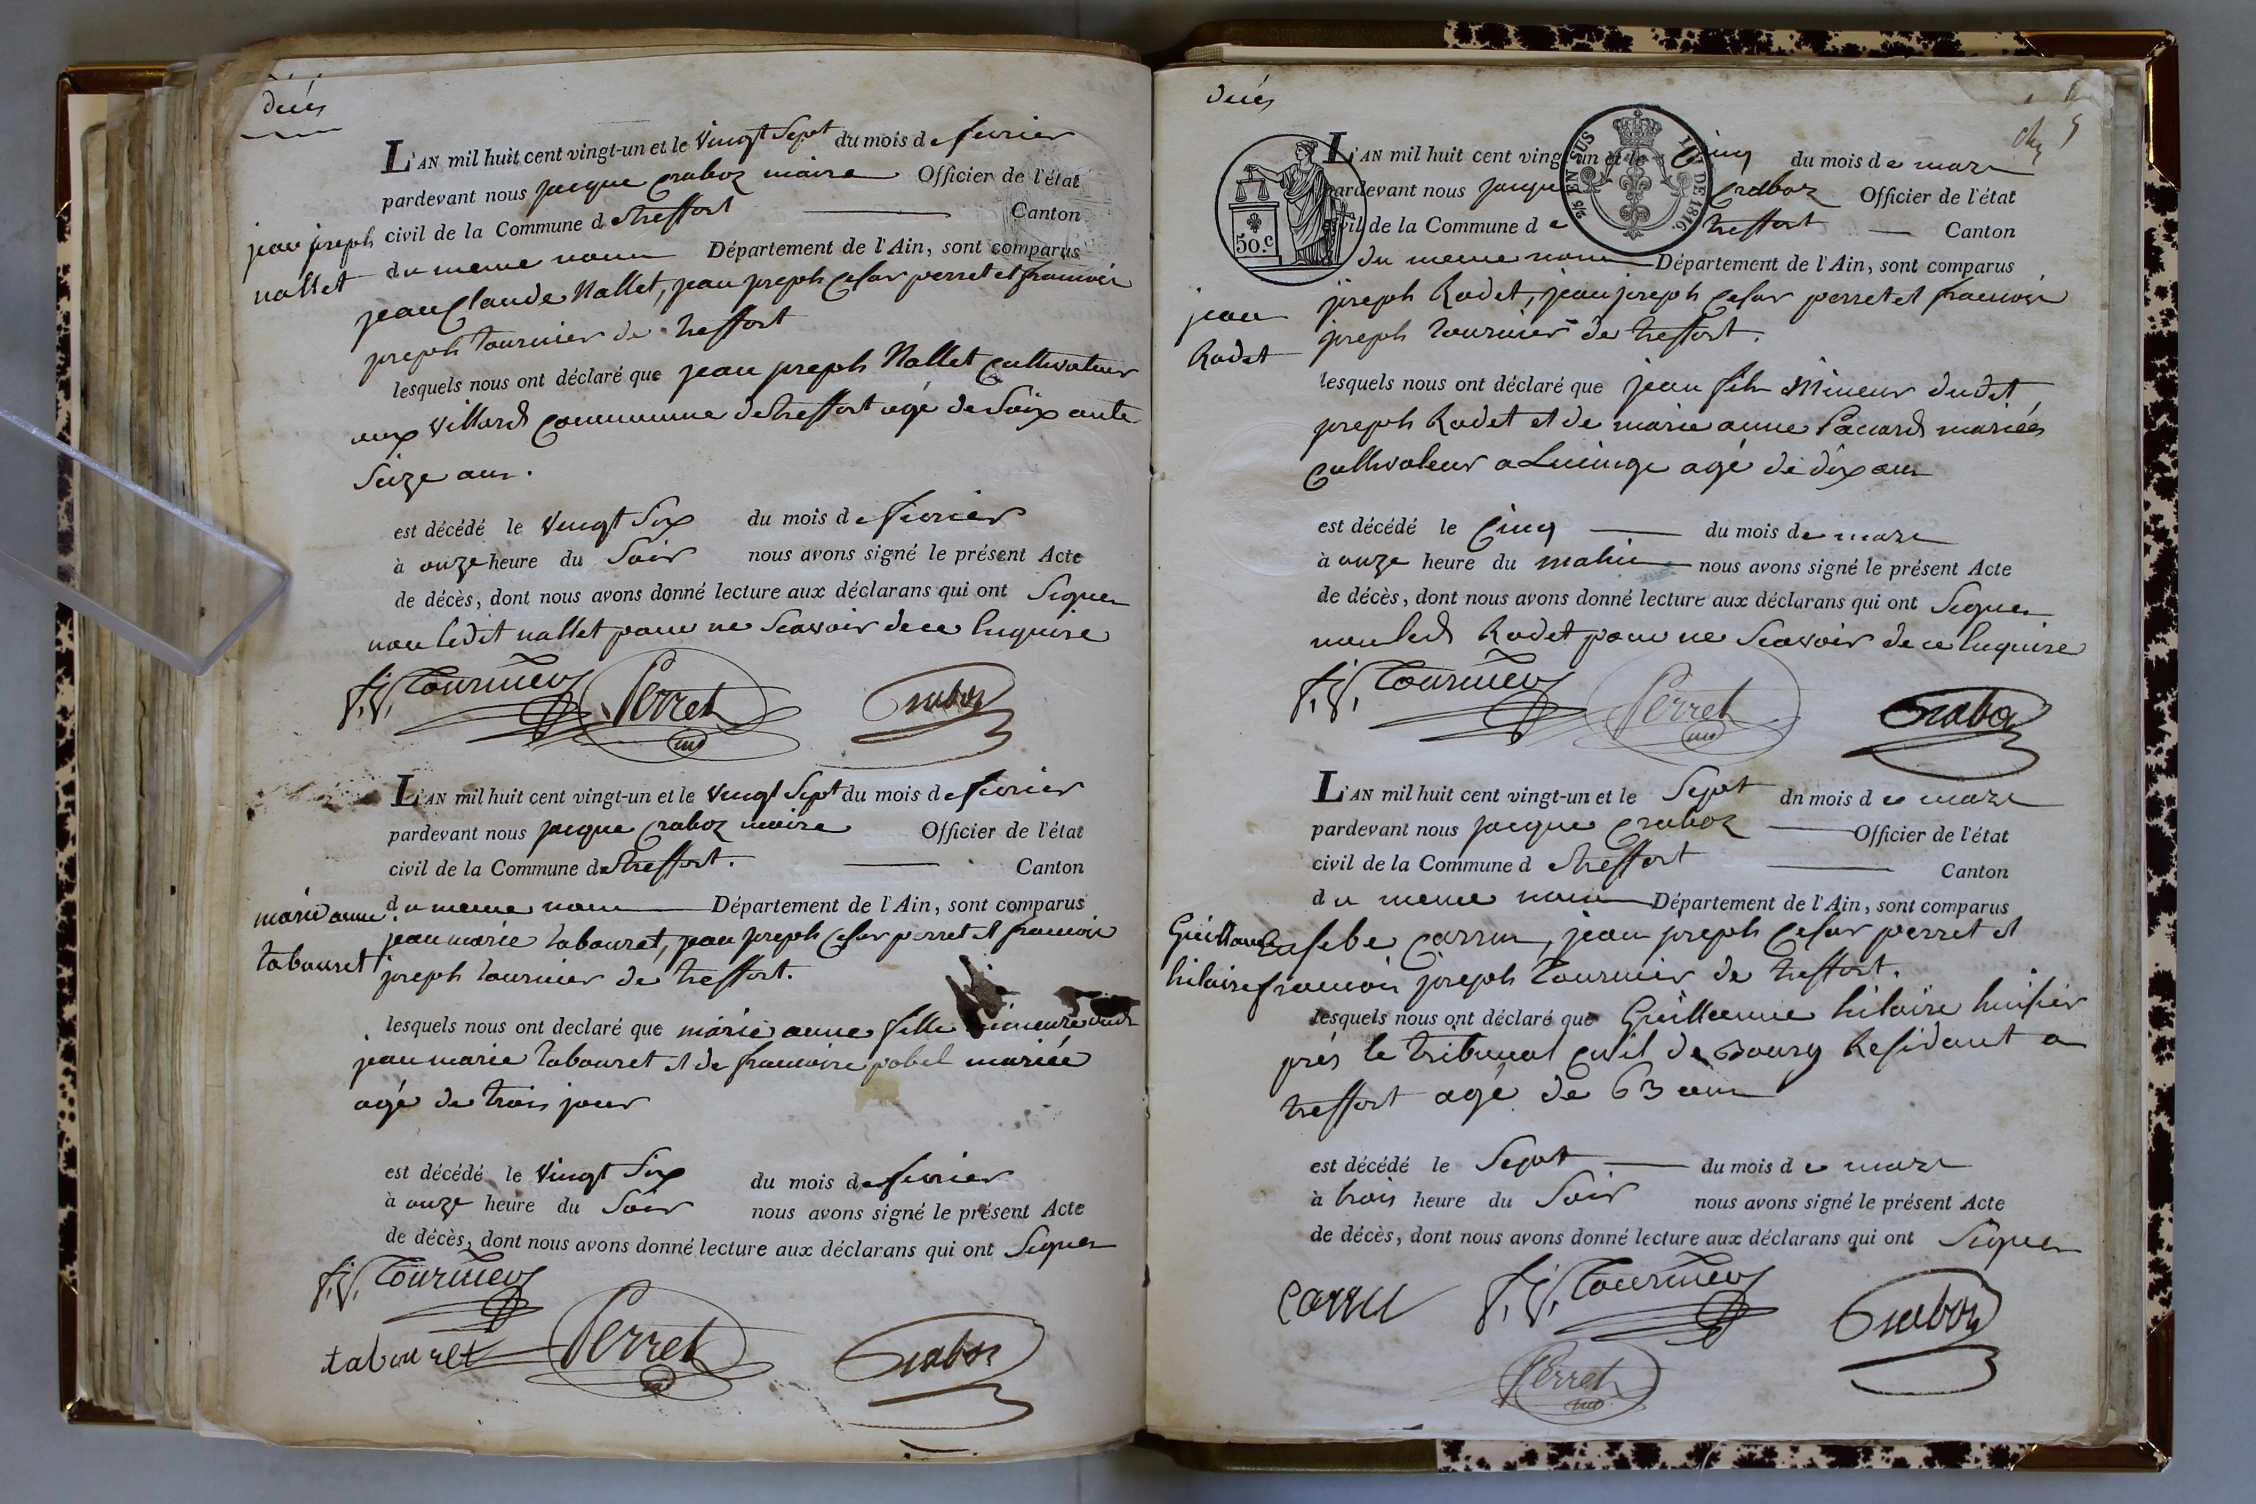 décés
L'AN mil huit cent vingt-un et le Vingt Sept du mois de fevrier
pardevant nous jacque Craboz maire Officier de l'état
civil de la Commune de treffort Canton
du meme nom Département de l'Ain, sont comparus
jean joseph
nallet
jean Claude Nallet, jean joseph Cesar perret et francois
joseph tournier de treffort
lesquels nous ont déclaré que jean joseph Nallet Cultivateur
aux Villard Commune de treffort agé de Soixante
Seize ans.
est décédé le Vingt Six du mois de fevrier
à onze heure du Soir nous avons signé le présent Acte
de décès, dont nous avons donné lecture aux déclarans qui ont Signer
non ledit nallet pour ne Scavoir de ce Enquire
f. j. Tournier Perret Craboz
L'AN mil huit cent vingt-un et le Vingt Sept du mois de fevrier
pardevant nous jacque Craboz maire Officier de l'état
civil de la Commune de treffort. Canton
du meme nom Département de l'Ain, sont comparus
marie anne
tabouret
jean marie tabouret, jean joseph Cesar perret et francois
joseph tournier de treffort.
lesquels nous ont declaré que marie anne fille mineure dudt
jean marie tabouret et de francoise pobel mariée
agé de trois jour
est décédé le Vingt Six du mois de fevrier
à onze heure du Soir nous avons signé le présent Acte
de décès, dont nous avons donné lecture aux déclarans qui ont Signer
f. j. Tournier
tabouret Perret Craboz
décés
5
EN SUS LOI DE 1816.
50.c
L'AN mil huit cent vingt-un et le Cinq du mois de mars
pardevant nous jacque Craboz Officier de l'état
civil de la Commune de treffort Canton
du meme nom Département de l'Ain, sont comparus
jean
Rodet
joseph Rodet, jean joseph Cesar perret et francois
joseph tournier de treffort.
lesquels nous ont déclaré que jean fils Mineur dudit
joseph Rodet et de marie anne Paccard mariés
Cultivateur a Lucinge agé de dix ans
est décédé le Cinq du mois de mars
à onze heure du matin nous avons signé le présent Acte
de décès, dont nous avons donné lecture aux déclarans qui ont Signer
non led Rodet pour ne Scavoir de ce Enquire
f. j. Tournier Perret Craboz
L'AN mil huit cent vingt-un et le Sept du mois de mars
pardevant nous jacque Craboz Officier de l'état
civil de la Commune de treffort Canton
du meme nom Département de l'Ain, sont comparus
Guillaume
hilaire
Eusebe Carru, jean joseph Cesar perret et
francois joseph tournier de treffort.
lesquels nous ont déclaré que Guillaume hilaire huissier
prés le tribunal civil de Bourg Residant a
treffort agé de 63 ans
est décédé le Sept du mois de mars
à trois heure du Soir nous avons signé le présent Acte
de décès, dont nous avons donné lecture aux déclarans qui ont Signer
Carru f. j. Tournier Craboz
Perret